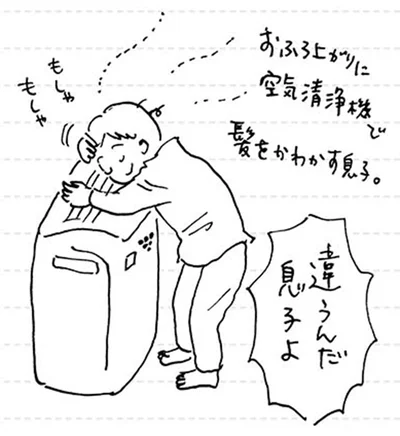 おふろ上がりに
空気清浄機で
髪をかわかす息子。
もしゃ
もしゃ
違うんだ
息子よ